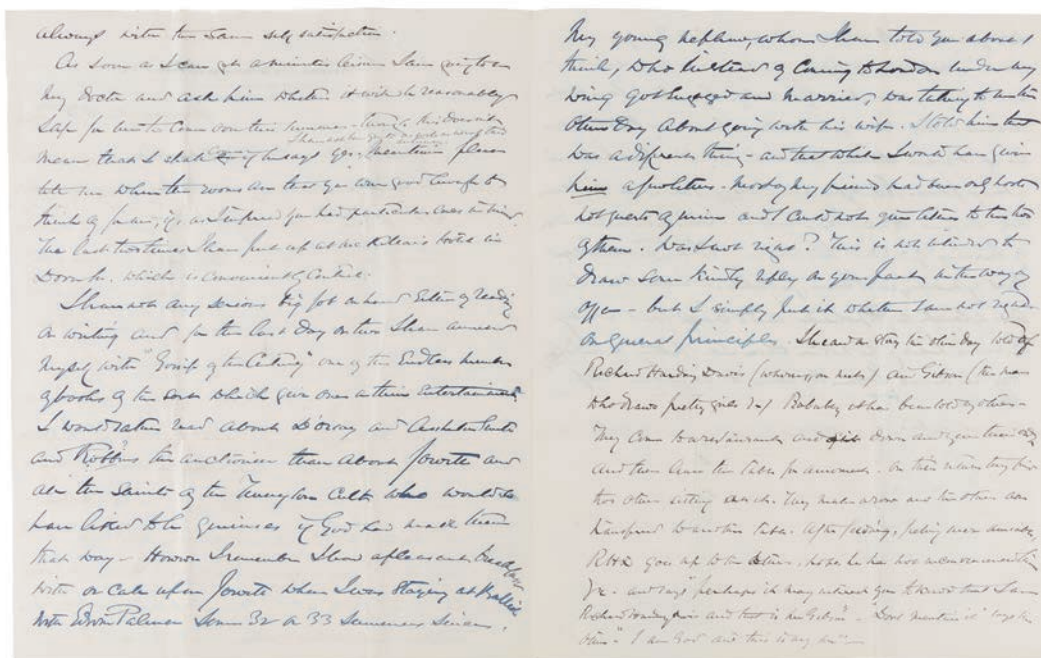 always with the same self satisfaction.
As soon as I can get a minute's leisure I am going to see
my doctor and ask him whether it will be reasonably
safe for me to come over this summer - though this doesn't
mean that I shall if he says yes. Meantime please
tell me where the rooms are that you were good enough to
think of for me, if, as I inferred you had particular ones in mind.
The last two times I have put up at Mackellar's hotel in
Dover St. which is convenient & central.
I have not any serious big job on hand either of reading
or writing and for the last day or two I have amused
myself with "Gossip of the Century" one of the endless number
of books of the sort which give one a thin entertainment.
I would rather read about D'Orsay and
and Robbins the auctioneer than about Jowett and
all the Saints of the Tennyson Cult who would
have liked to be geniuses if God had made them
that way - However I remember I had a pleasant breakfast
with or call upon Jowett when I was staying at Balliol
with Edwin Palmer some 32 or 33 summers since.
My young nephew, whom I have told you about I
think, who instead of coming to London under my
wing got engaged and married, was talking to me the
other day about going with his wife. I told him that
was a different thing - and that while I would have given
him a few letters - most of my friends had been only hosts
not guests of mine and I could not give letters to the two
of them. Was I not right? This is not intended to
draw some kindly reply on your part in the way of
offer - but I simply put it whether I am not right
on general principles. I heard a story the other day told of
Richard Harding Davis (whom you met) and Gibson (the man
who draws pretty girls &c) Probably it has been told of others -
They come to a restaurant and sit down and give their order
and then leave the table for a moment. On their return they find
two others sitting at it. They make a row and the others are
transferred to another table. After feeding, feeling more amiable,
RHD goes up to the others, hopes he has not inconvenienced them
&c - and says "perhaps it may interest you to know that I am
Richard Harding Davis and that is Mr Gibson" - "Don't mention it" says the
other - "I am God and this is my son" -